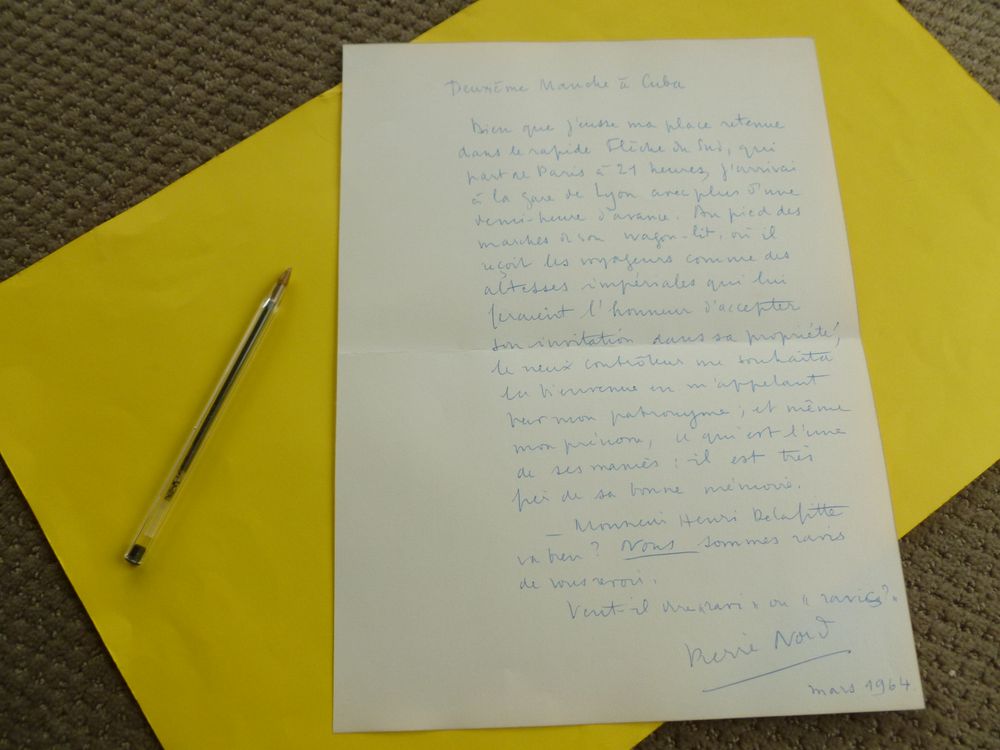 Deuxième Manche à Cuba
Bien que j'eusse ma place retenue
dans le rapide Flèche du Sud, qui
part de Paris à 21 heures, j'arrivai
à la gare de Lyon avec plus d'une
demi-heure d'avance. Au pied des
marches de son wagon-lit, où il
reçoit les voyageurs comme des
altesses impériales qui lui
feraient l'honneur d'accepter
son invitation dans sa propriété,
le vieux contrôleur me souhaita
la bienvenue en m'appelant
par mon patronyme ; et même
mon prénom, ce qui est l'une
de ses manies : il est très
fier de sa bonne mémoire.
— Monsieur Henri Delafitte
va bien ? Nous sommes ravis
de vous revoir.
Veut-il dire « ravi » ou « ravis ? »
Pierre Nord
mars 1964